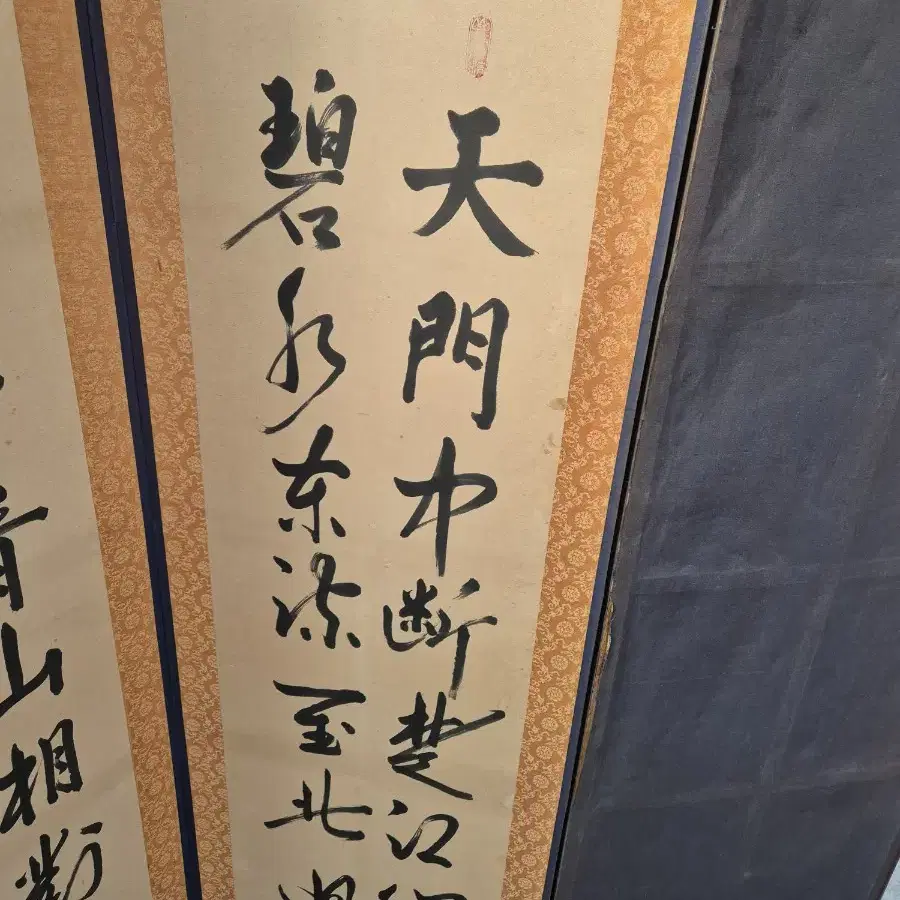 天門中斷楚江
碧水東流至北
青山相對